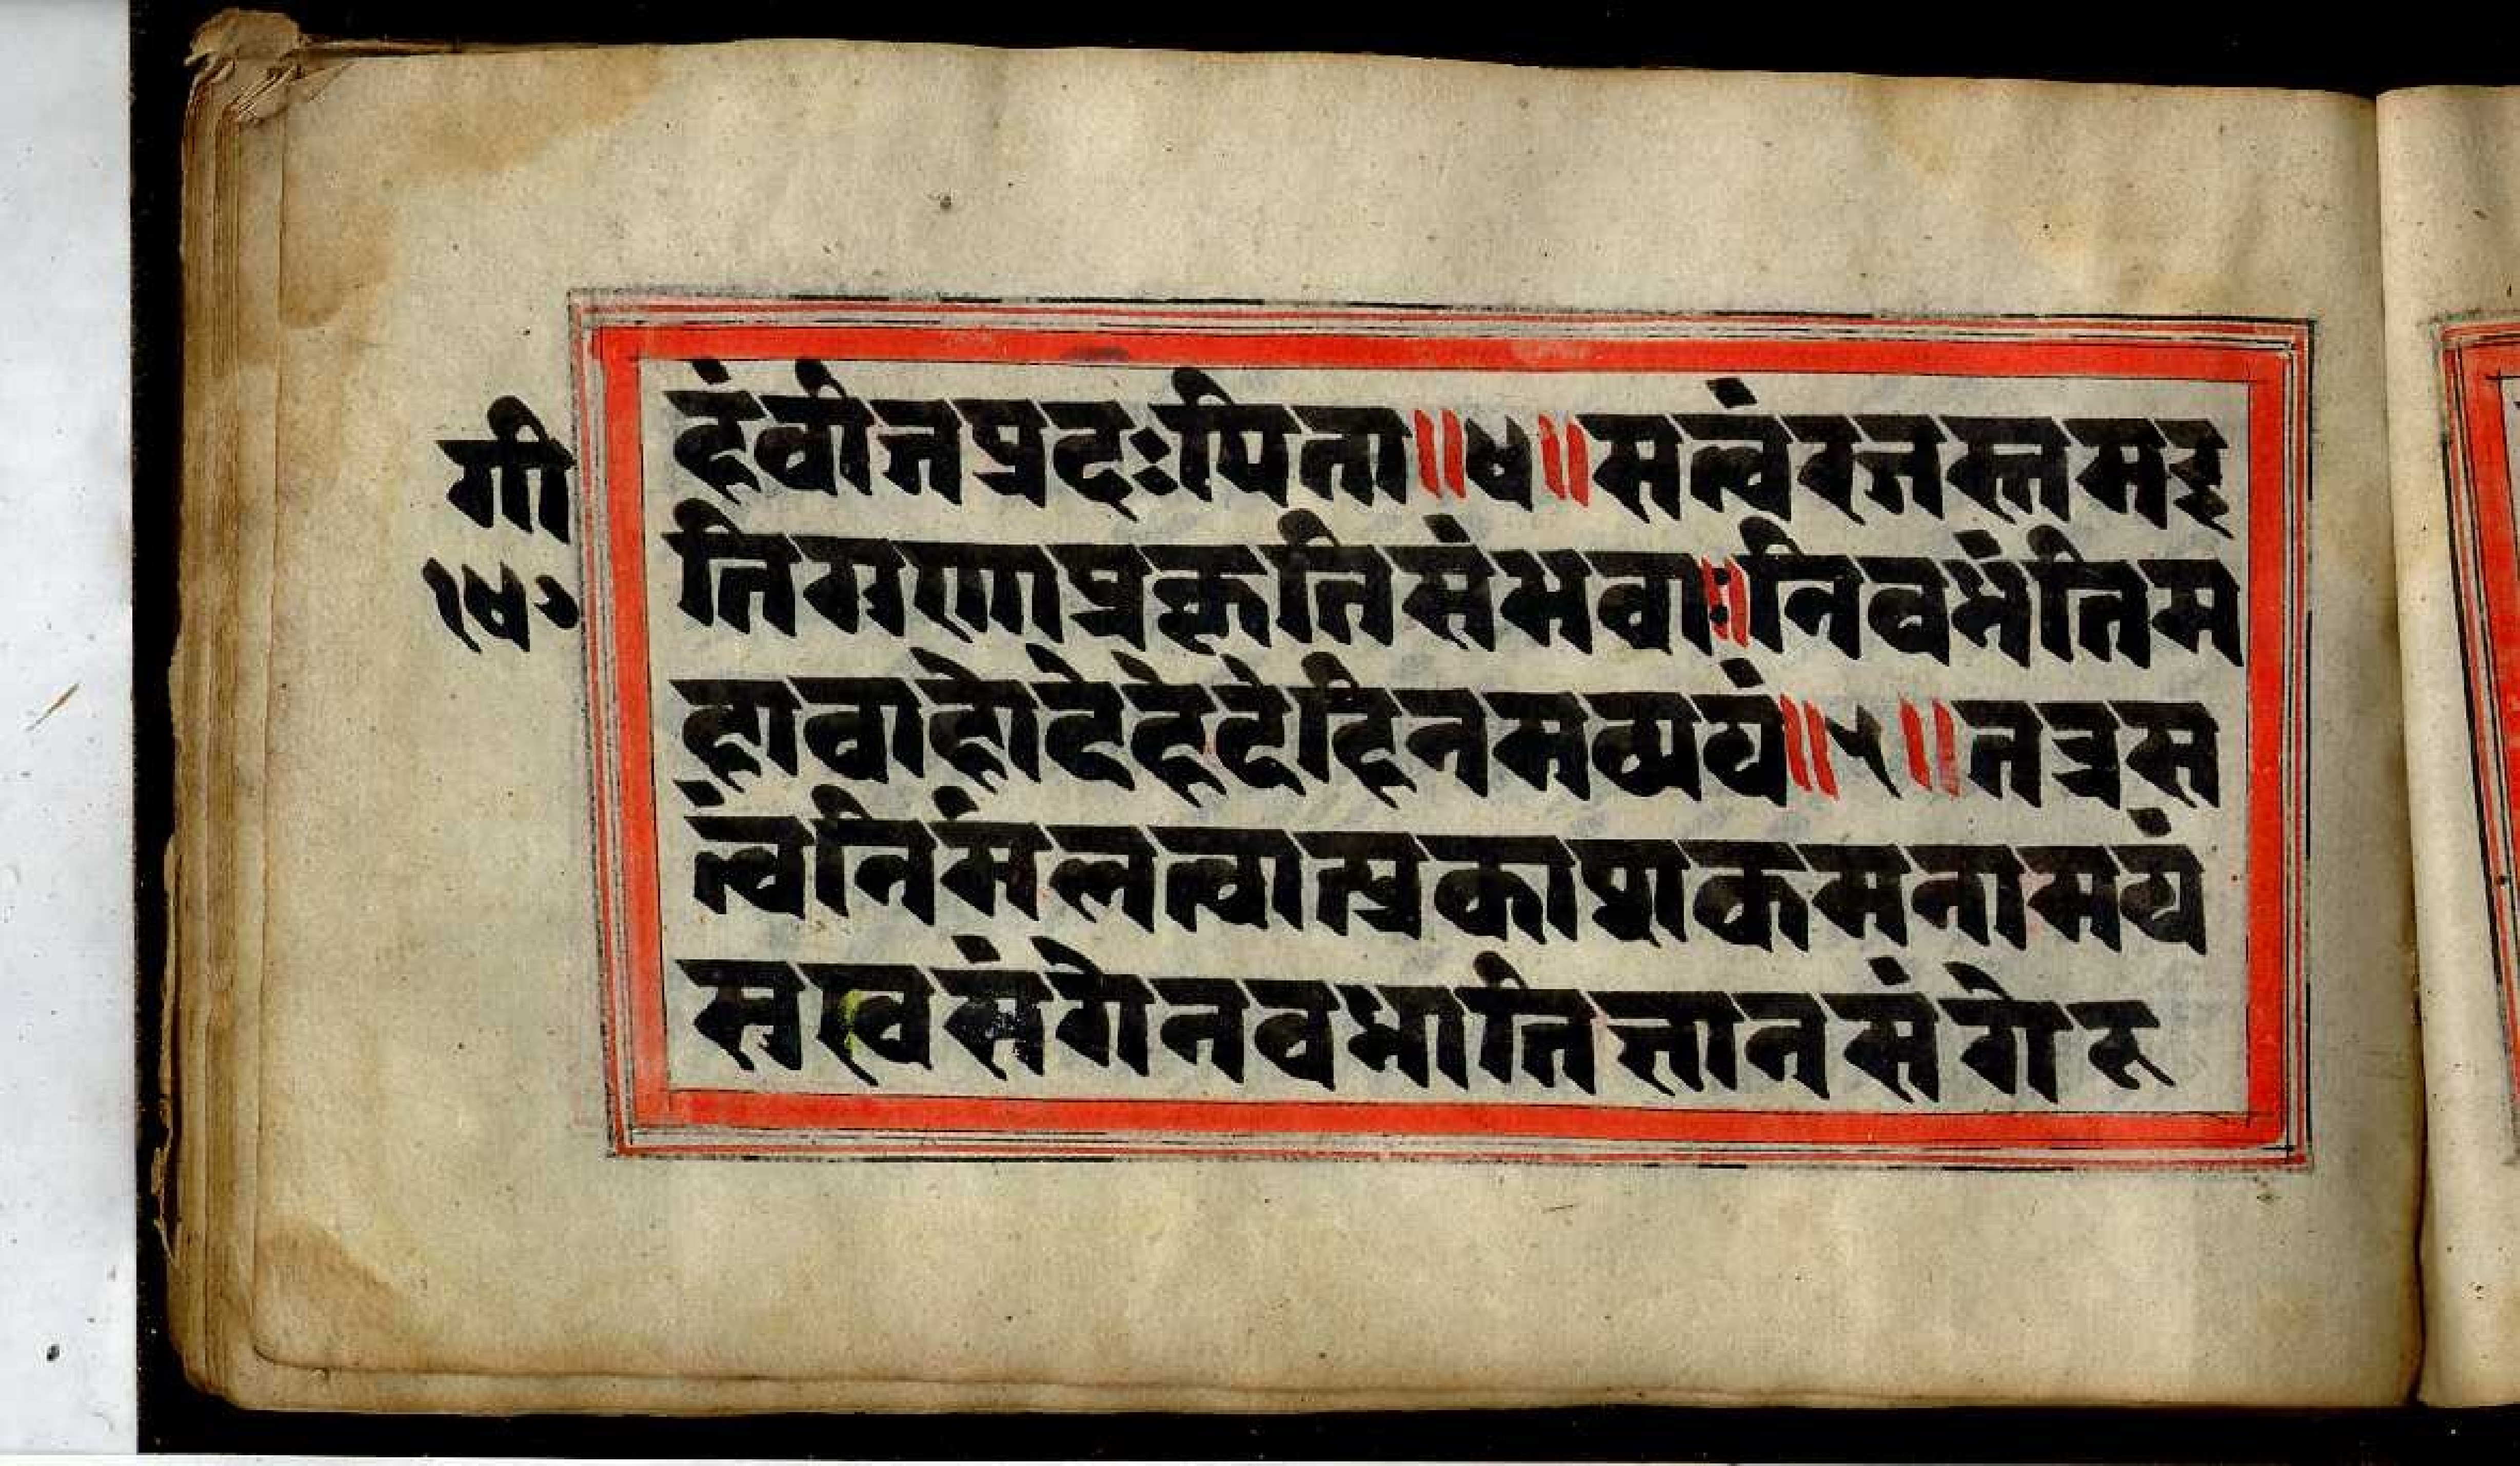 गी
१४०
हंवीजप्रदःपिता॥४॥सत्वंरजस्तमइ
तिगुणाप्रकृतिसंभवाः।निवध्नंतिम
हावाहोदेहेदेहिनमव्ययं॥५॥तत्रस
त्वंनिर्मलत्वात्प्रकाशकमनामयं
सुखसंगेनवध्नातिज्ञानसंगेह